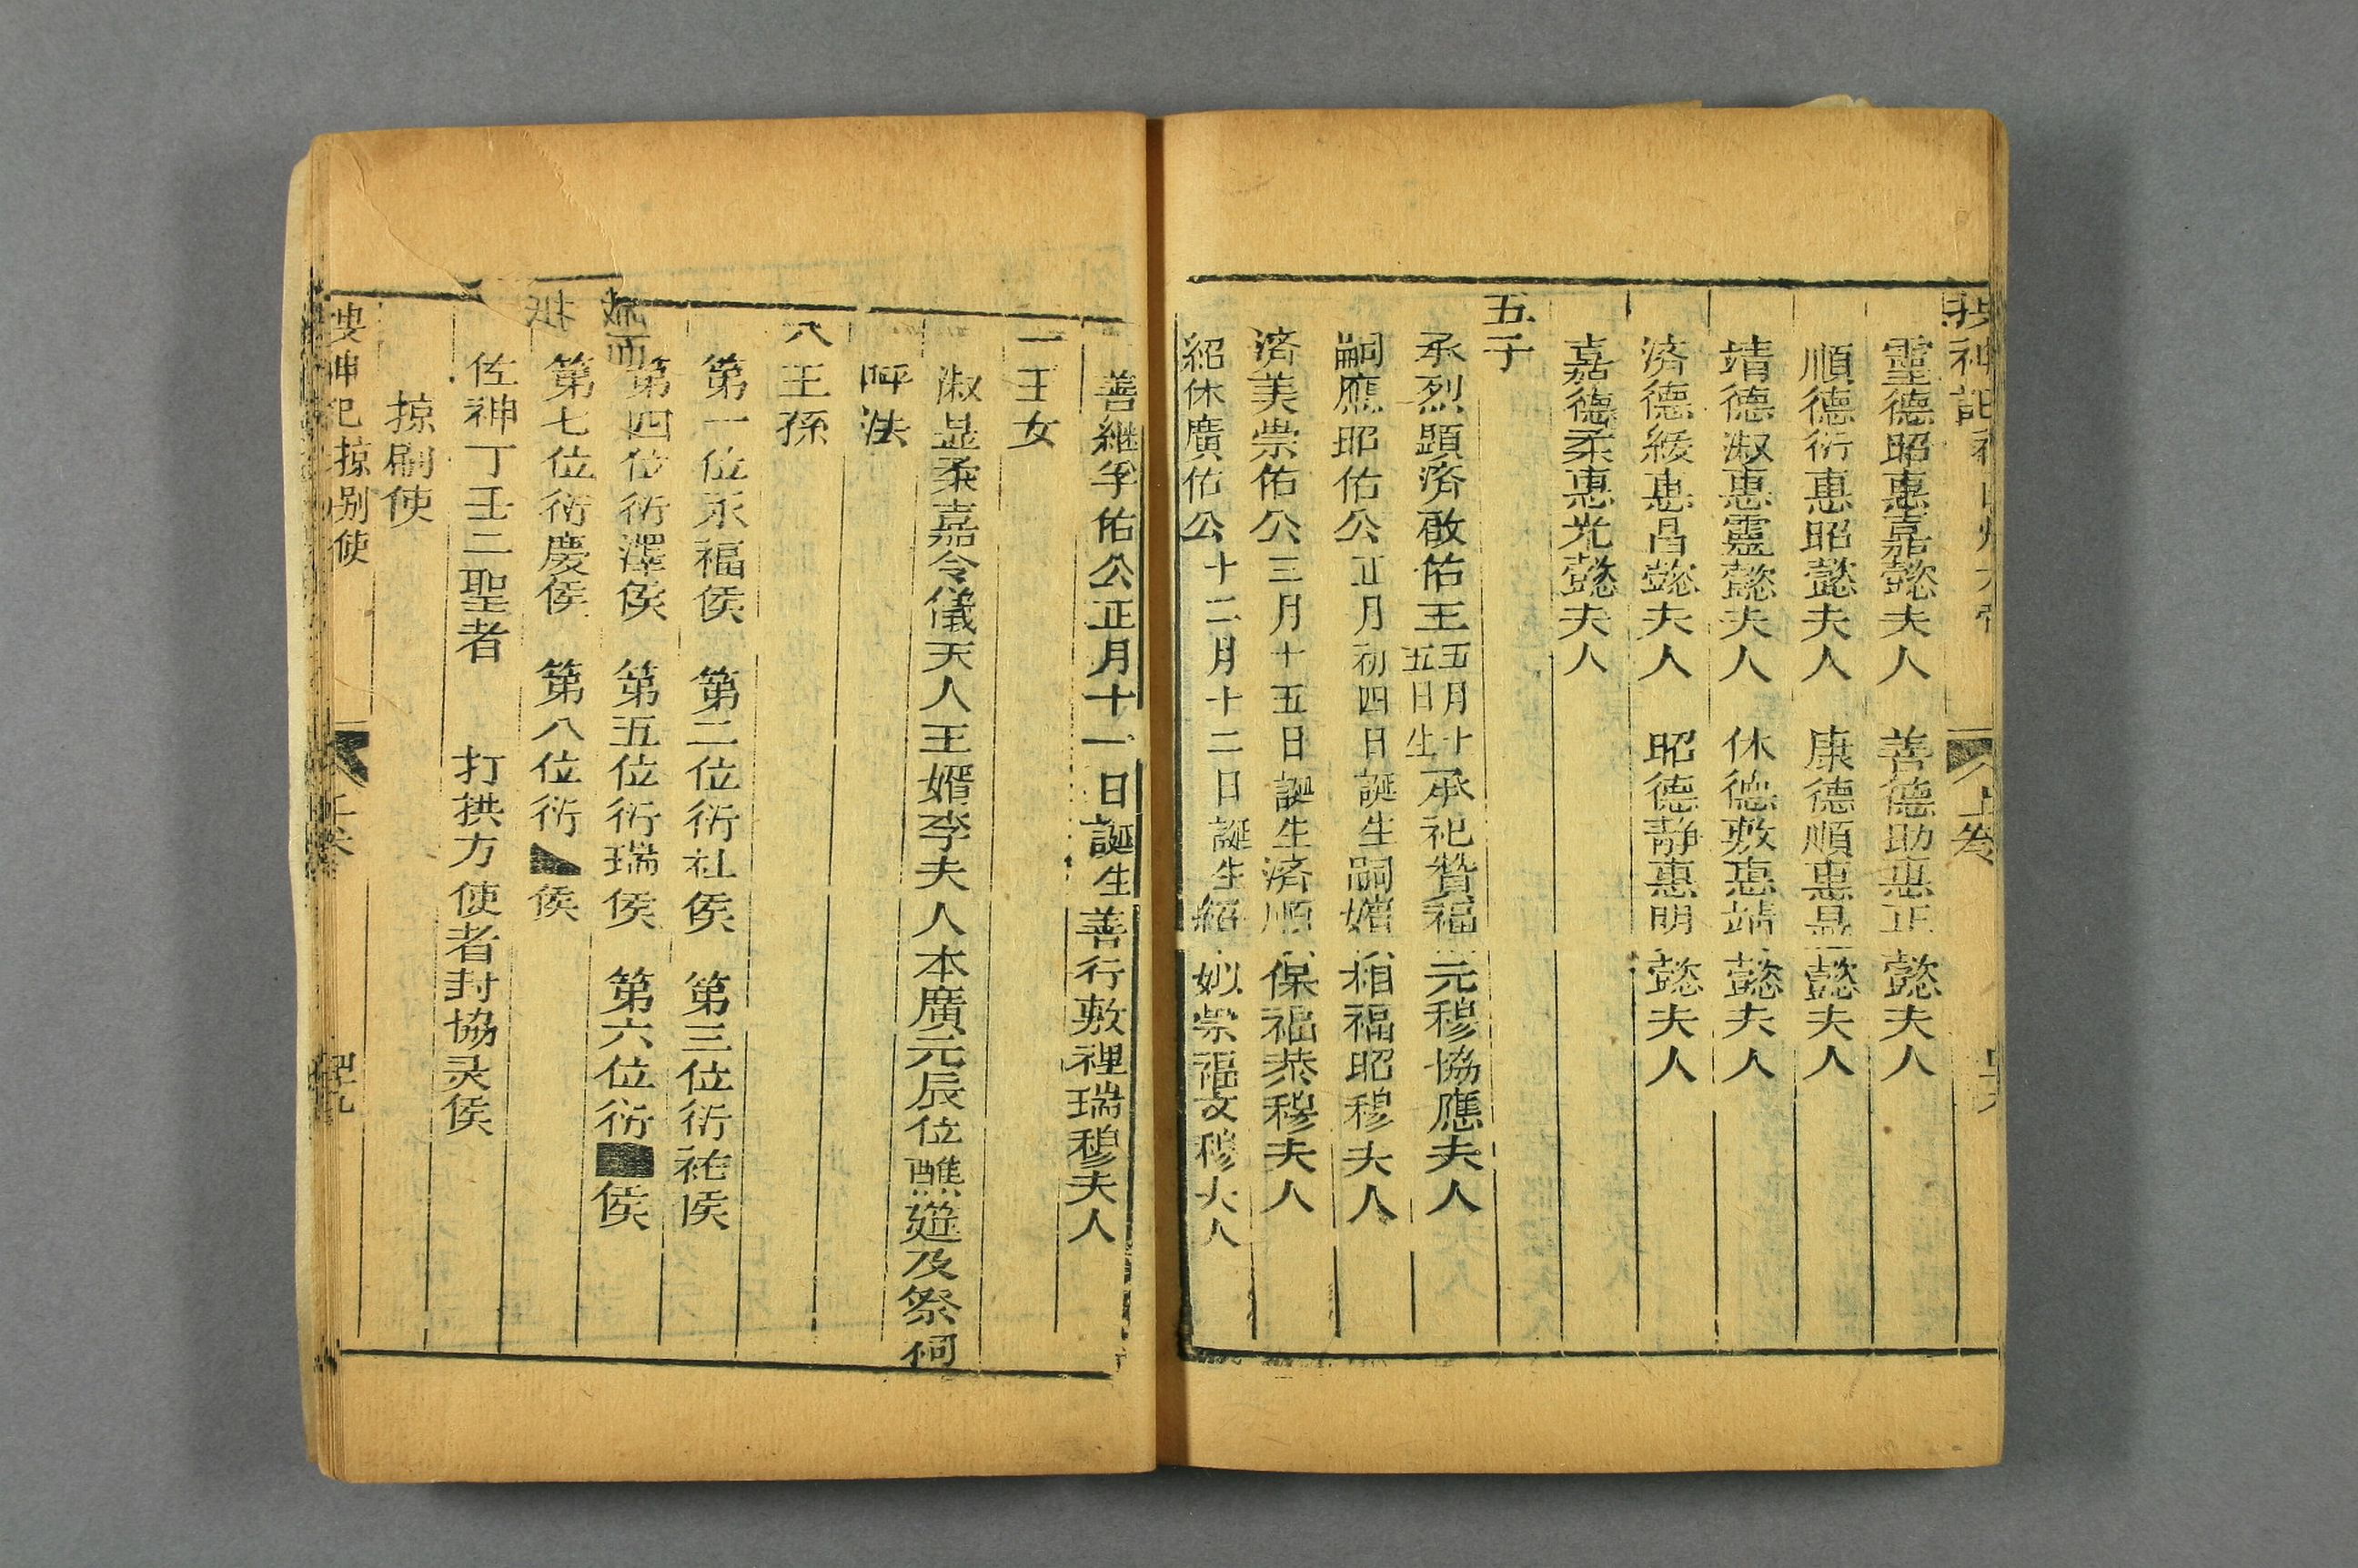 搜神記 祠山 上卷
靈德昭惠嘉懿夫人 善德助惠正懿夫人
順德衍惠昭懿夫人 康德順惠懿夫人
靖德淑惠靈懿夫人 休德敷惠靖懿夫人
済德綏惠昌懿夫人 昭德靜惠明懿夫人
嘉德柔惠光懿夫人
五子
承烈顕済啟佑王五月十五日生承祀贊福元穆協應夫人
嗣應昭佑公正月初四日誕生嗣福昭穆夫人
済美崇佑公三月十五日誕生済順保福恭穆夫人
紹休廣佑公十二月十二日誕生紹妙崇福文穆夫人
善継孚佑公正月十一日誕生善行敷裡瑞穆夫人
一王女
淑显柔嘉令儀天人王婿李夫人本廣元辰位醮筵及祭祠
呼法
八王孫
第一位承福侯 第二位衍社侯 第三位衍祐侯
第四位衍澤侯 第五位衍瑞侯 第六位衍侯
第七位衍慶侯 第八位衍侯
佐神丁壬二聖者 打拱方使者封協灵侯
掠刷使
掠刷使